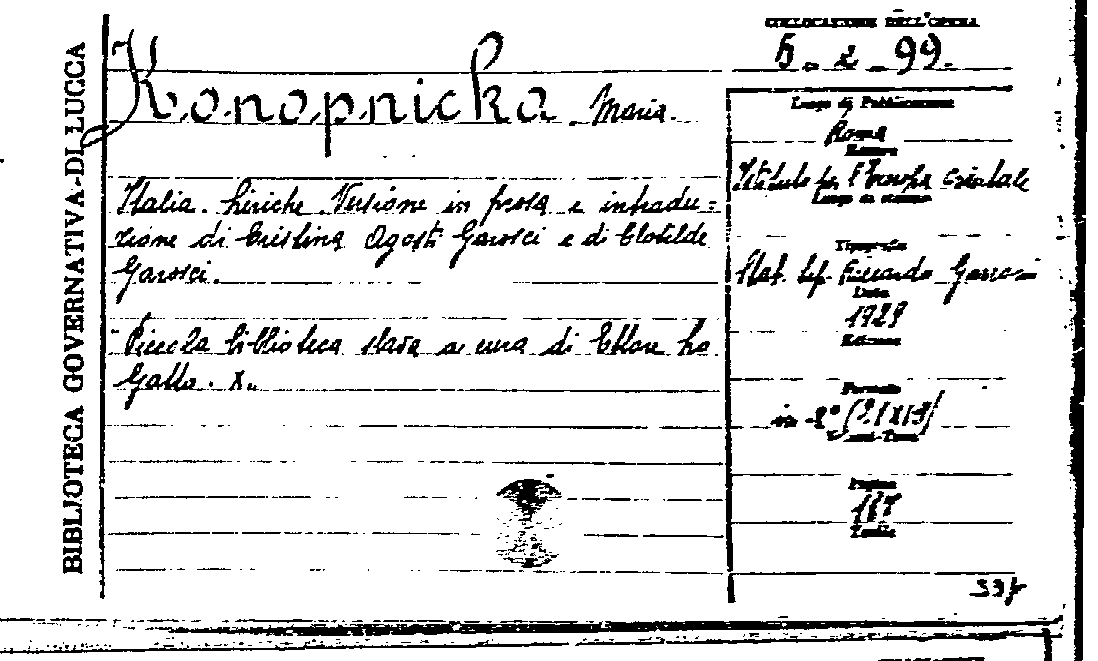 BIBLIOTECA GOVERNATIVA-DI LUCCA
COLLOCAZIONE DELL'OPERA
Konopnicka Maria.
Luogo di Pubblicazione
Roma
Italia. Liriche. Versione in prosa e introdu=
zione di Cristina Agosti Garosci e di Clotilde
Garosci.
Istituto per l'Europa Orientale
Luogo di stampa
Tipografia
Stab. tip. Riccardo Garroni
Data
1929
Edizione
Piccola biblioteca slava a cura di Ettore Lo
Gatto. X.
Formato
in -8°
Pagine
187